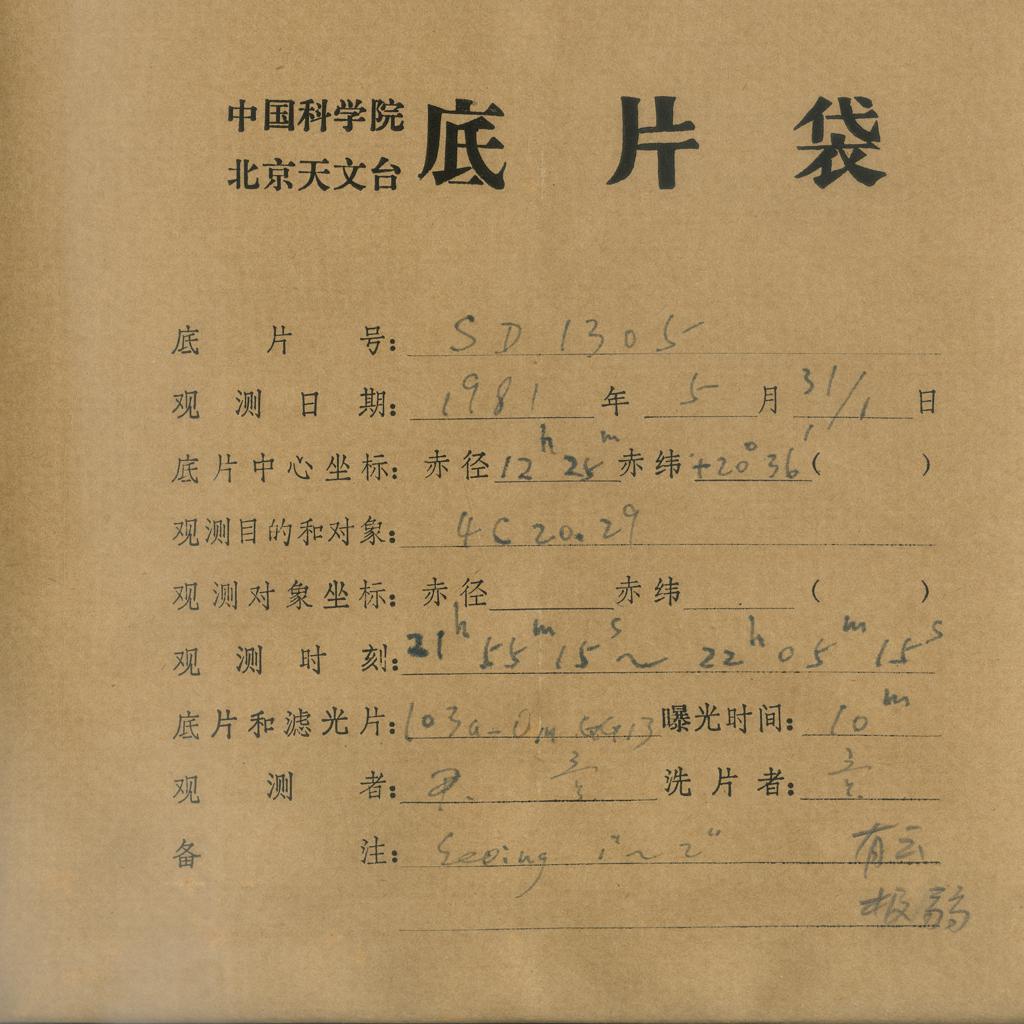 中国科学院
北京天文台
底片袋
底片号: SD 1305
观测日期: 1981 年 5 月 31/1 日
底片中心坐标: 赤径 12h 25m 赤纬 +20° 36′ ( )
观测目的和对象: 4C 20.29
观测对象坐标: 赤径 赤纬 ( )
观测时刻: 21h 55m 15s ~ 22h 05m 15s
底片和滤光片: 103a-O 曝光时间: 10m
观测者: 洗片者:
备注: Seeing 1"~2" 有云